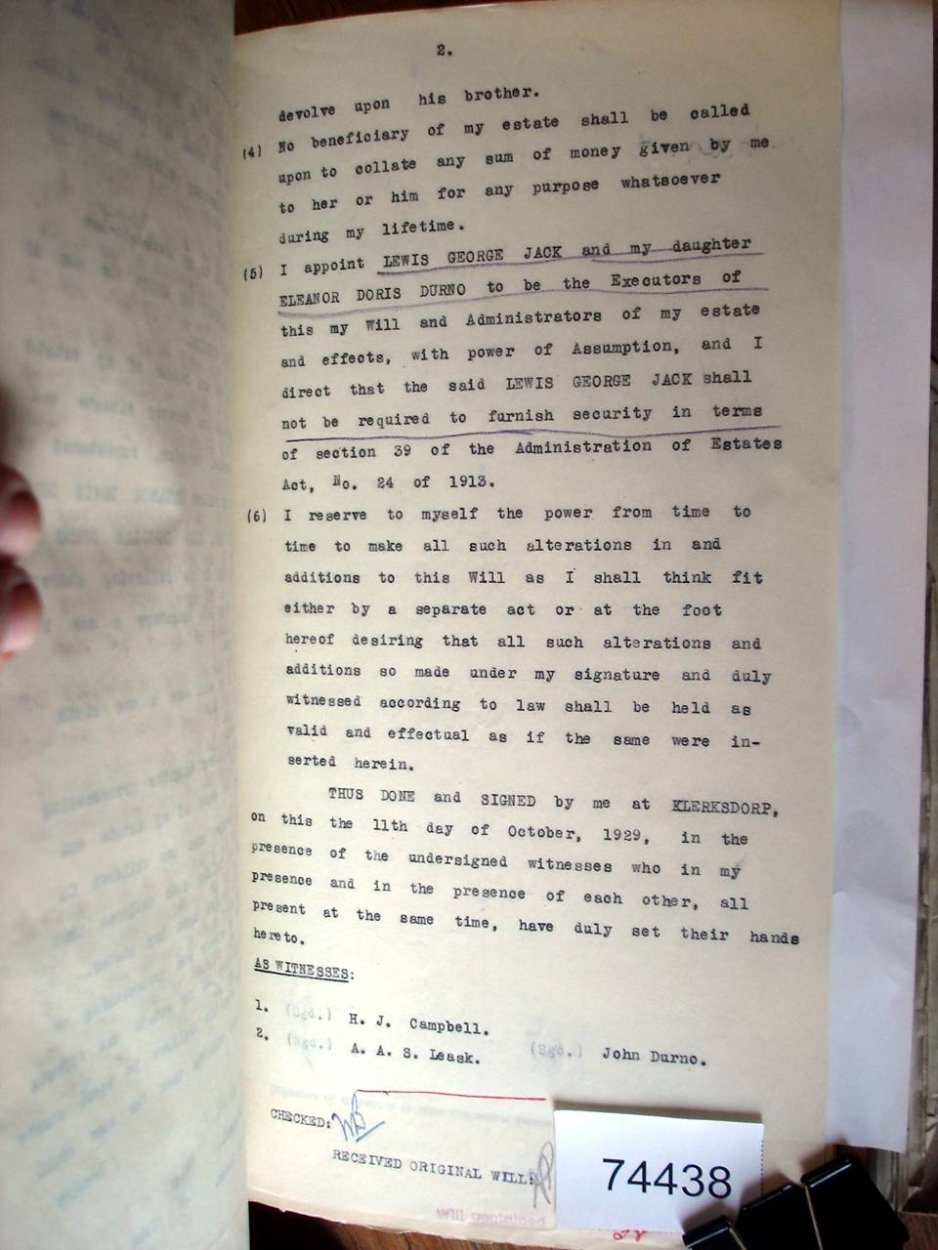 2.
devolve upon his brother.
(4) No beneficiary of my estate shall be called
upon to collate any sum of money given by me
to her or him for any purpose whatsoever
during my lifetime.
(5) I appoint LEWIS GEORGE JACK and my daughter
ELEANOR DORIS DURNO to be the Executors of
this my Will and Administrators of my estate
and effects, with power of Assumption, and I
direct that the said LEWIS GEORGE JACK shall
not be required to furnish security in terms
of section 39 of the Administration of Estates
Act, No. 24 of 1913.
(6) I reserve to myself the power from time to
time to make all such alterations in and
additions to this Will as I shall think fit
either by a separate act or at the foot
hereof desiring that all such alterations and
additions so made under my signature and duly
witnessed according to law shall be held as
valid and effectual as if the same were in-
serted herein.
THUS DONE and SIGNED by me at KLERKSDORP,
on this the 11th day of October, 1929, in the
presence of the undersigned witnesses who in my
presence and in the presence of each other, all
present at the same time, have duly set their hands
hereto.
AS WITNESSES:
1. (Sgd.) H. J. Campbell.
2. (Sgd.) A. A. S. Leask. (Sgd.) John Durno.
CHECKED:
RECEIVED ORIGINAL WILL:
74438